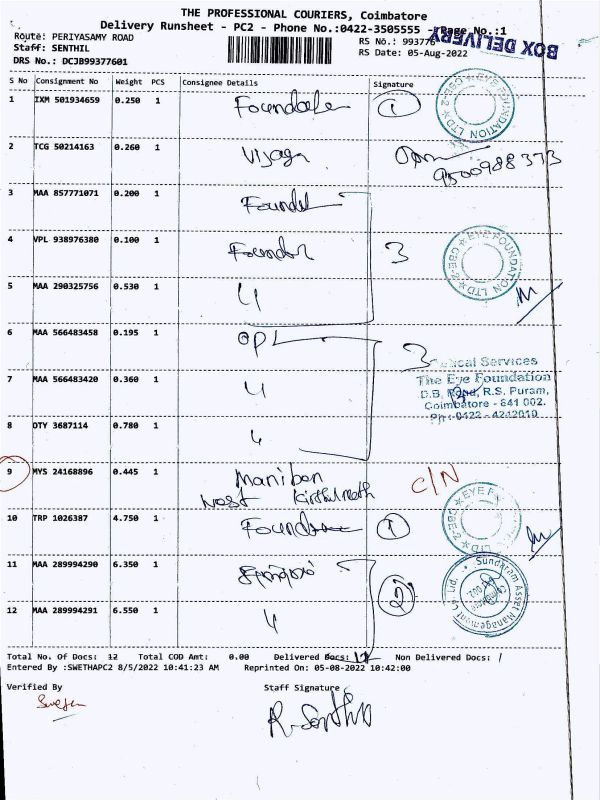 THE PROFESSIONAL COURIERS, Coimbatore
Delivery Runsheet - PC2 - Phone No.:0422-3505555 - Page No.:1
BOX DELIVERY
Route: PERIYASAMY ROAD
RS No.: 99377
Staff: SENTHIL
RS Date: 05-Aug-2022
DRS No.: DCJB99377601
S No Consignment No Weight PCS Consignee Details Signature
1 IXM 501934659 0.250 1 1
EYE FOUNDATION LTD CBE-2
2 TCG 50214163 0.260 1 Vijaya
9500988373
3 MAA 857771071 0.200 1
4 VPL 938976380 0.100 1 3
EYE FOUNDATION LTD CBE-2
5 MAA 290325756 0.530 1 4
6 MAA 566483458 0.195 1 OPL 3
Medical Services
7 MAA 566483420 0.360 1 4
The Eye Foundation
D.B. Road, R.S. Puram,
Coimbatore - 641 002.
Ph : 0422 - 4242010
8 OTY 3687114 0.780 1 4
9 MYS 24168896 0.445 1 C/N
West
EYE F CBE-2
10 TRP 1026387 4.750 1 1
11 MAA 289994290 6.350 1 2
Sundaram Asset Management Co. Ltd.
12 MAA 289994291 6.550 1 4
Total No. Of Docs: 12 Total COD Amt: 0.00 Delivered Docs: 12 Non Delivered Docs: /
Entered By :SWETHAPC2 8/5/2022 10:41:23 AM Reprinted On: 05-08-2022 10:42:00
Verified By Staff Signature
R. Senthil